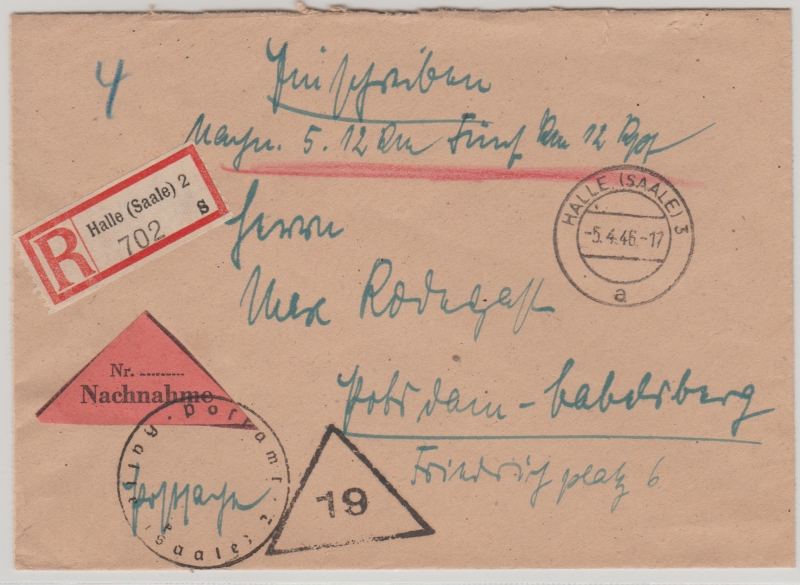 4
Einschreiben
Nachn. 5.12 Rm Fünf Rm 12 Rpf
Halle (Saale) 2
s
R
702
HALLE (SAALE) 3
-5.4.46.-17
a
Herrn
Max Rodegast
Nr. ............
Nachnahme
Potsdam-Babelsberg
Friedrichplatz 6
Postamt 2
Halle (Saale)
Postsache
19